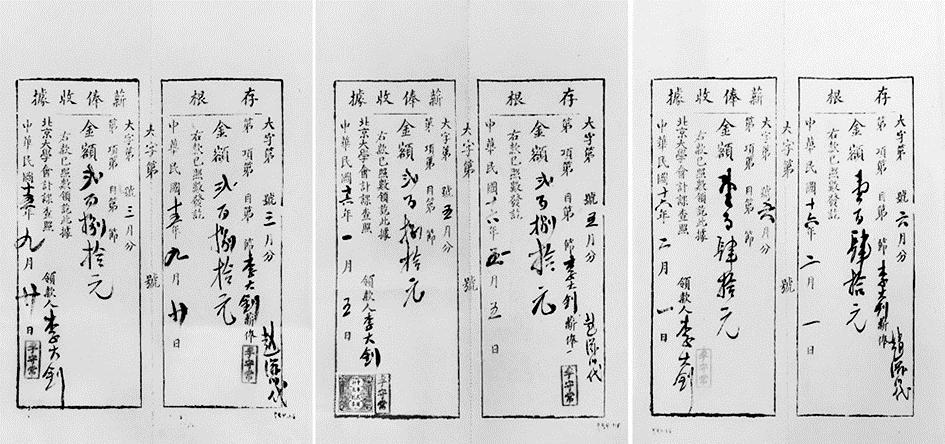 存根
大字第 號三月分
第 項第 目第 節李大釗薪俸
李守常
金額貳百捌拾元
右款已照數發訖
中華民國十五年九月廿日
大字第 號
薪俸收據
大字第 號三月分
第 項第 目第 節
金額貳百捌拾元
右款已照數領訖此據
北京大學會計課查照
領款人李大釗
中華民國十五年九月廿日
李守常
存根
大字第 號五月分
第 項第 目第 節李大釗薪俸
李守常
金額貳百捌拾元
右款已照數發訖
中華民國十六年 月五日
大字第 號
薪俸收據
大字第 號五月分
第 項第 目第 節
金額貳百捌拾元
右款已照數領訖此據
北京大學會計課查照
領款人李大釗
中華民國十六年一月五日
李守常
存根
大字第 號六月分
第 項第 目第 節李大釗薪俸
金額壹百肆拾元
右款已照數發訖
中華民國十六年二月一日
大字第 號
薪俸收據
大字第 號六月分
第 項第 目第 節
金額壹百肆拾元
右款已照數領訖此據
北京大學會計課查照
領款人李大釗
中華民國十六年二月一日
李守常